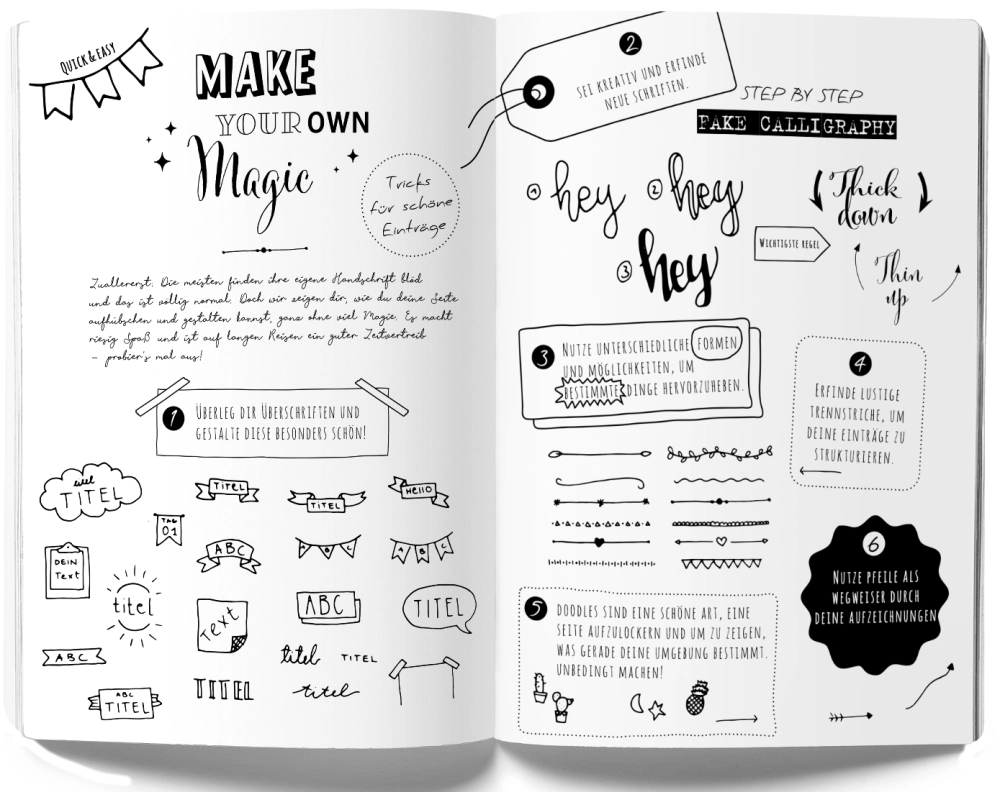 QUICK & EASY
MAKE
YOUR OWN
Magic
Tricks
für schöne
Einträge
Zuallererst: Die meisten finden ihre eigene Handschrift blöd
und das ist völlig normal. Doch wir zeigen dir, wie du deine Seite
aufhübschen und gestalten kannst, ganz ohne viel Magie. Es macht
riesig Spaß und ist auf langen Reisen ein guter Zeitvertreib
– probier's mal aus!
1 ÜBERLEG DIR ÜBERSCHRIFTEN UND
GESTALTE DIESE BESONDERS SCHÖN!
titel
TITEL
TITEL
TITEL
HELLO
TAG
01
ABC
A B C
A B C
DEIN
Text
titel
Text
ABC
TITEL
ABC
titel
TITEL
ABC
TITEL
TITEL
titel
2
SEI KREATIV UND ERFINDE
NEUE SCHRIFTEN.
STEP BY STEP
FAKE CALLIGRAPHY
1 hey
2 hey
3 hey
WICHTIGSTE REGEL
Thick
down
Thin
up
3 NUTZE UNTERSCHIEDLICHE FORMEN
UND MÖGLICHKEITEN, UM
BESTIMMTE DINGE HERVORZUHEBEN.
4
ERFINDE LUSTIGE
TRENNSTRICHE, UM
DEINE EINTRÄGE ZU
STRUKTURIEREN.
5 DOODLES SIND EINE SCHÖNE ART, EINE
SEITE AUFZULOCKERN UND UM ZU ZEIGEN,
WAS GERADE DEINE UMGEBUNG BESTIMMT.
UNBEDINGT MACHEN!
6
NUTZE PFEILE ALS
WEGWEISER DURCH
DEINE AUFZEICHNUNGEN